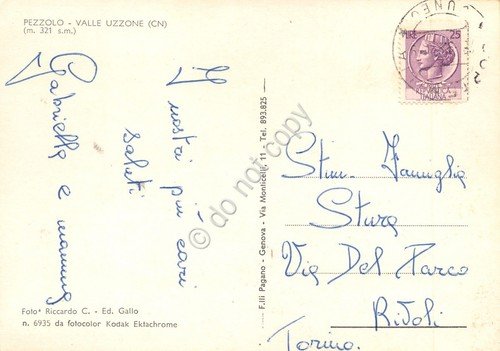 PEZZOLO - VALLE UZZONE (CN)
(m. 321 s.m.)
I nostri più cari
saluti
Gabriella e mamma
Foto* Riccardo C. - Ed. Gallo
n. 6935 da fotocolor Kodak Ektachrome
F.lli Pagano - Genova - Via Monticelli, 11 - Tel. 893.825
LIRE 25
REPVBBLICA
ITALIANA
CUNEO
Stim. Famiglia
Stura
Via Del Parco
Rivoli
Torino.
© do not copy